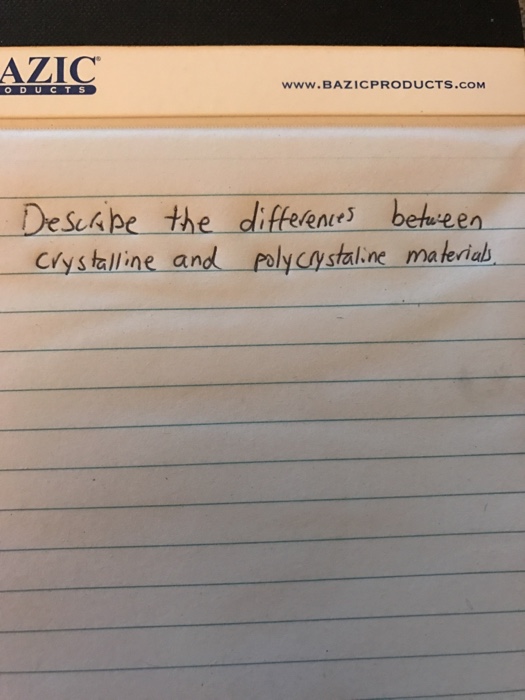 AZIC®
ODUCTS
WWW.BAZICPRODUCTS.COM
Describe the differences between
crystalline and polycrystaline materials.